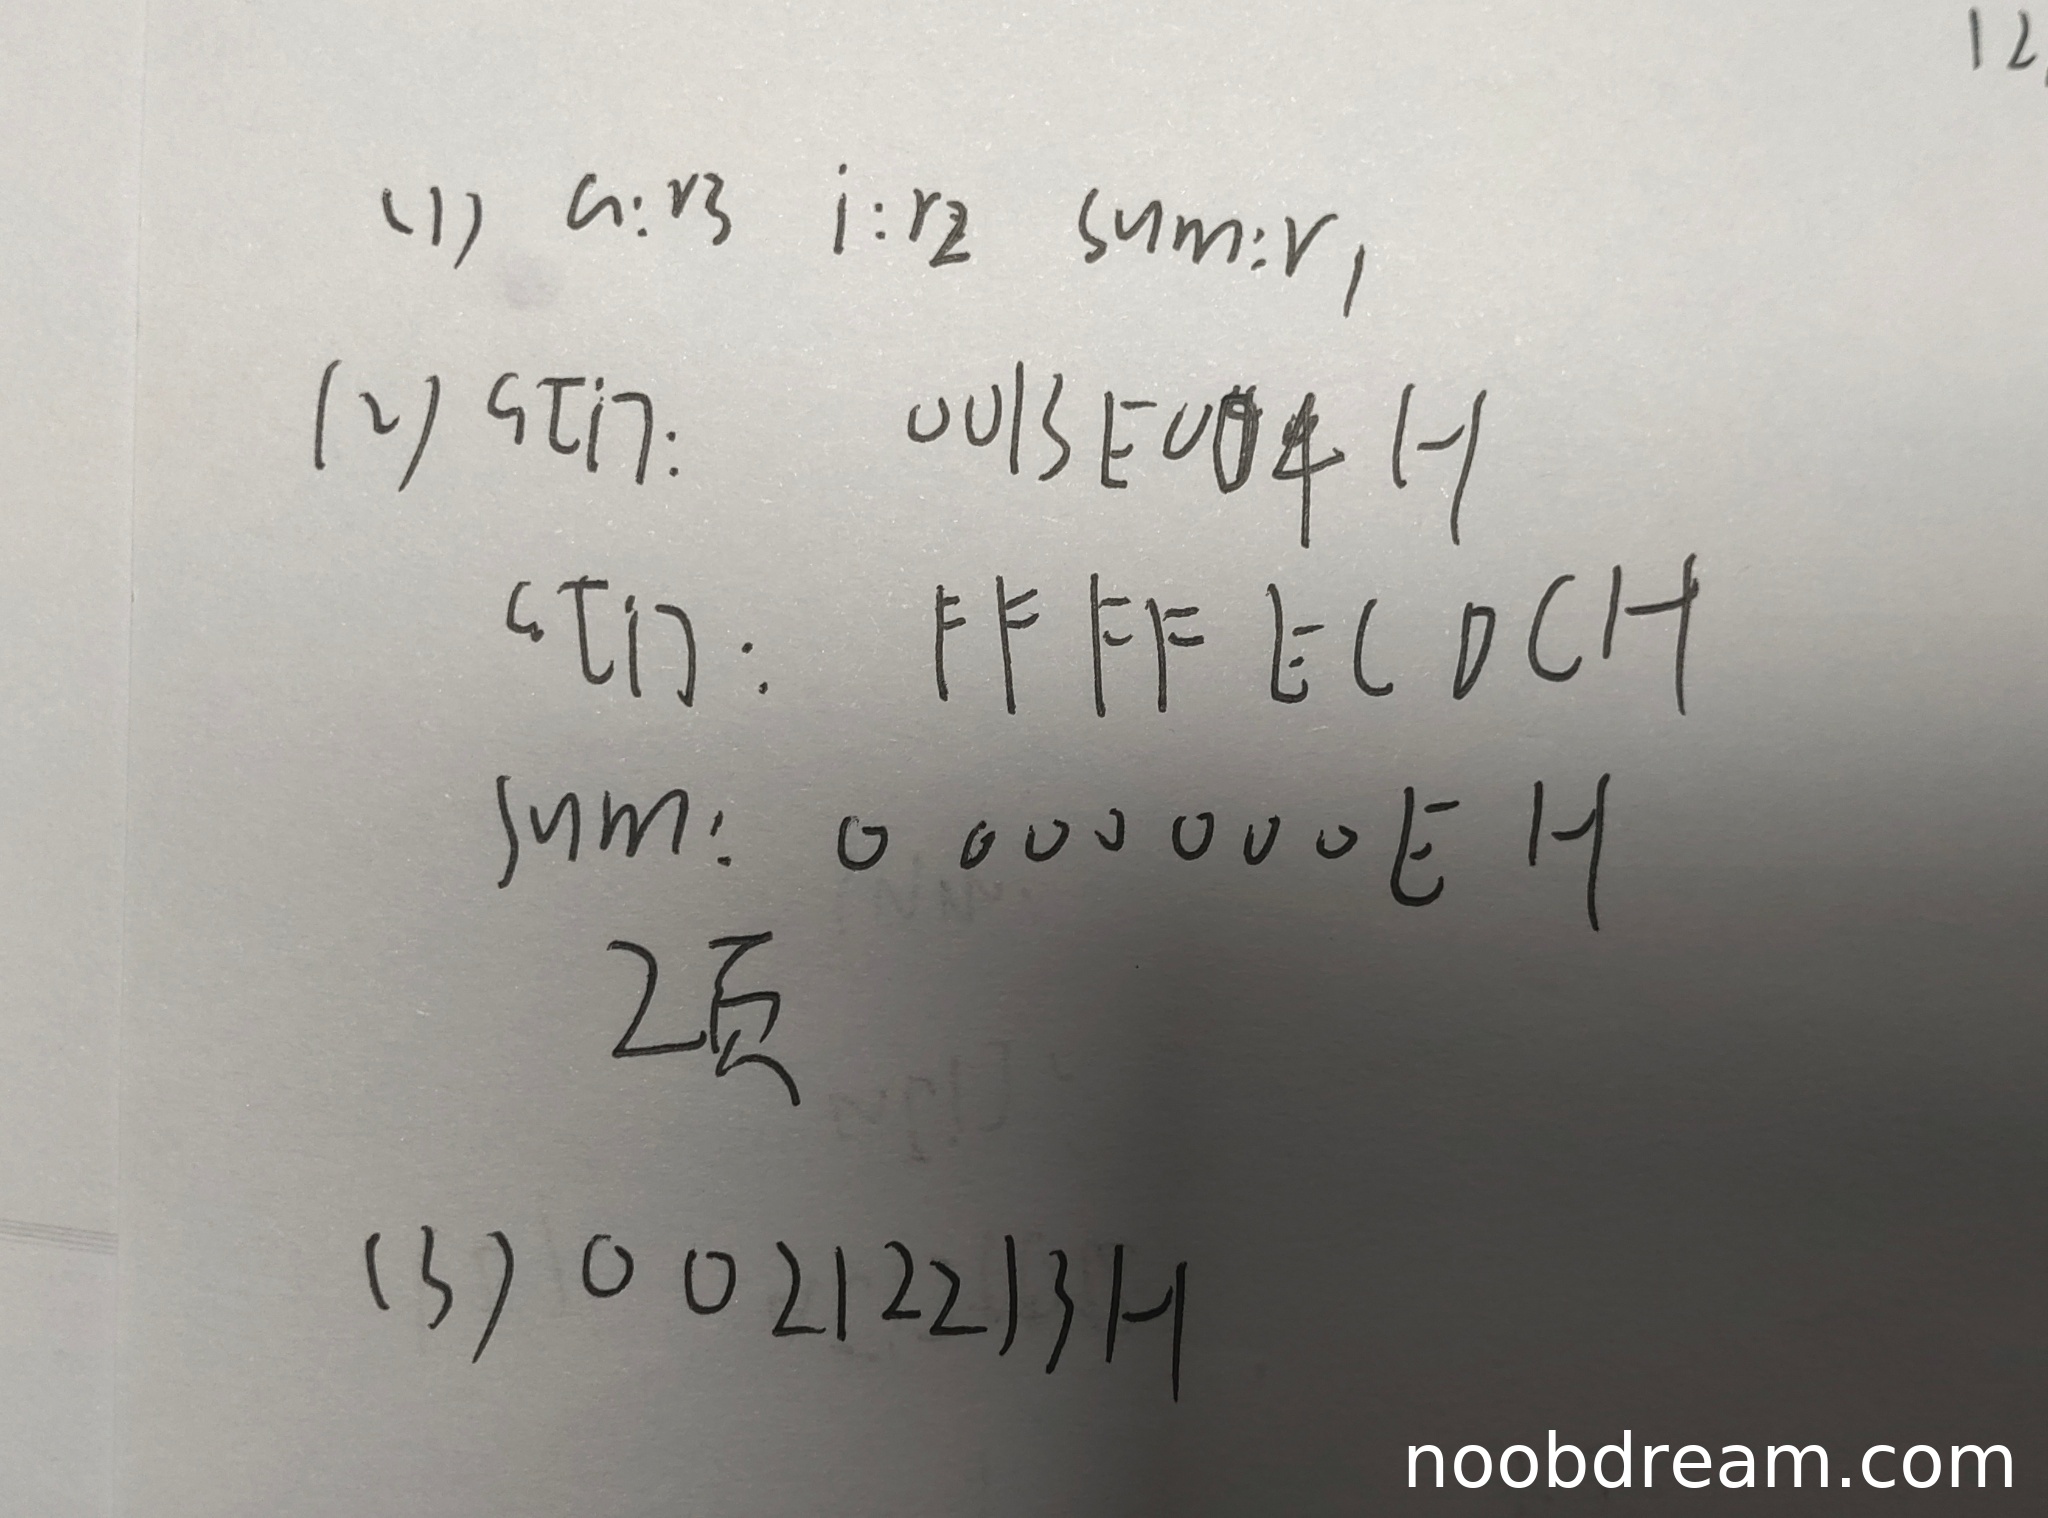 12,
(1) a:r3 i:r2 sum:r1
(2) a[i]: 0013E004H
a[i]: FFFFECDCH
sum: 0000000EH
2页
(3) 00212213H
noobdream.com